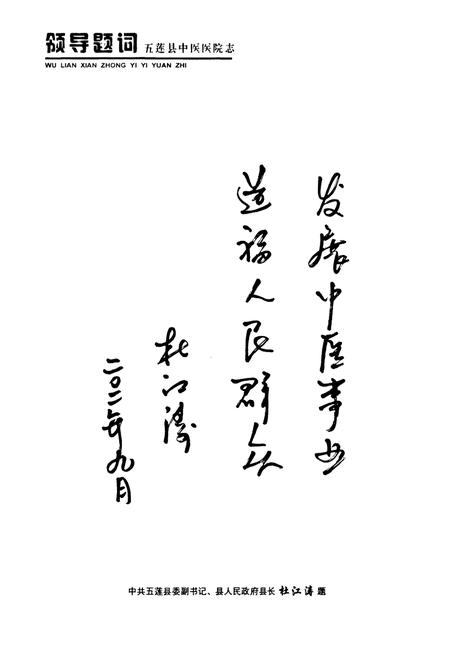 领导题词 五莲县中医医院志
WU LIAN XIAN ZHONG YI YI YUAN ZHI
发展中医事业
造福人民群众
杜江涛
二〇一二年九月
中共五莲县委副书记、县人民政府县长 杜江涛 题